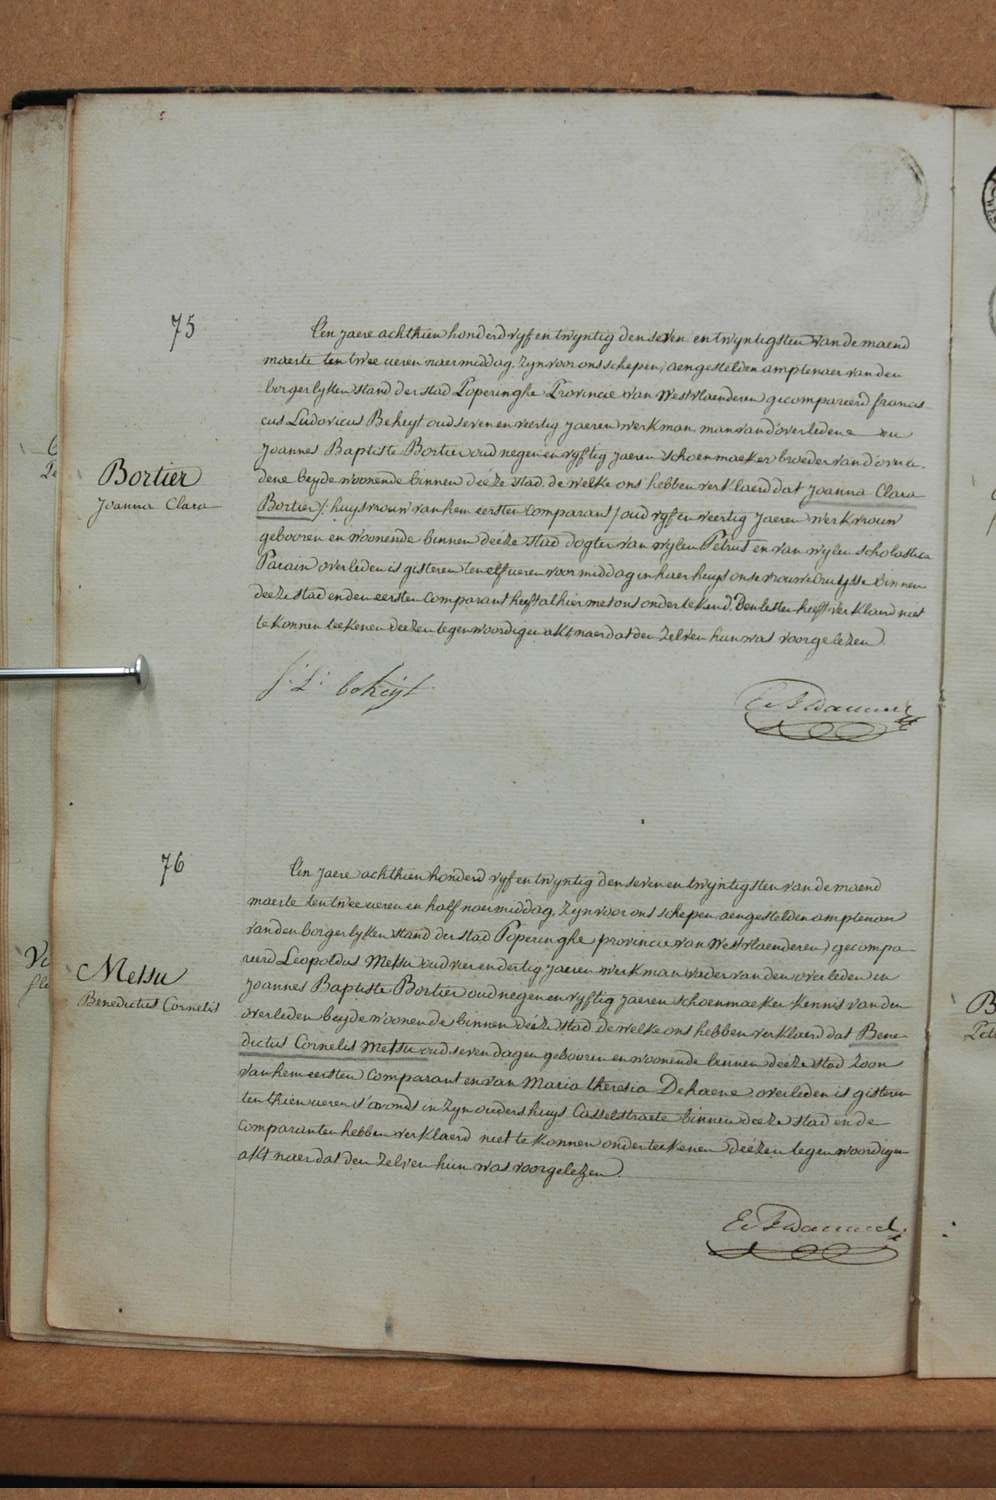 75
Bortier
Joanna Clara
Een jaere achthien honderd vyf en twyntig den seven en twyntigsten van de maend
maerte ten twee ueren naermiddag, zyn voor ons schepen, aengestelden amptenaer van den
borgerlyken stand der stad Poperinghe Provincie van Westvlaenderen gecompareerd francis-
cus Ludovicus Bekeyt oud seven en veertig jaeren werkman, man van d'overledene en
Joannes Baptiste Bortier oud negen en vyftig jaeren schoenmaeker broeder van d'overle-
dene beyde woonende binnen deéze stad, de welke ons hebben verklaerd dat Joanna Clara
Bortier /: huysvrouw van hem eersten comparant / oud vyf en veertig jaeren werkvrouw
gebooren en woonende binnen deeze stad dogter van wylen Petrus en van wylen scholastica
Parain overleden is gisteren ten elf ueren voormiddag in haer huys onse vrouwe binnen
deeze stad en den eersten comparant heeft alhier met ons onderteekend, Den lesten heeft verklaerd niet
te konnen teekenen deézen tegenwoordigen akt naer dat den zelven hun was voorgelezen.
f: L: bekeijt
76
Messu
Benedictus Cornelis
Een jaere achthien honderd vyf en twyntig den seven en twyntigsten van de maend
maerte ten twee ueren en half naermiddag, zyn voor ons schepen aengestelden amptenaer
van den borgerlyken stand der stad Poperinghe provincie van Westvlaenderen, gecompa-
reerd Leopoldus Messu oud vier en dertig jaeren werkman vader van den overleden en
Joannes Baptiste Bortier oud negen en vyftig jaeren schoenmaeker kennis van den
overleden beyde woonende binnen deéze stad de welke ons hebben verklaerd dat Bene-
dictus Cornelis Messu oud seven dagen gebooren en woonende binnen deeze stad zoon
van hem eersten comparant en van Maria theresia Dehaene, overleden is gisteren
ten thien ueren s'avonds in zyn ouders huys Casselstraete binnen deeze stad en de
comparanten hebben verklaerd niet te konnen onderteekenen deézen tegenwoordigen
akt naer dat den zelven hun was voorgelezen.